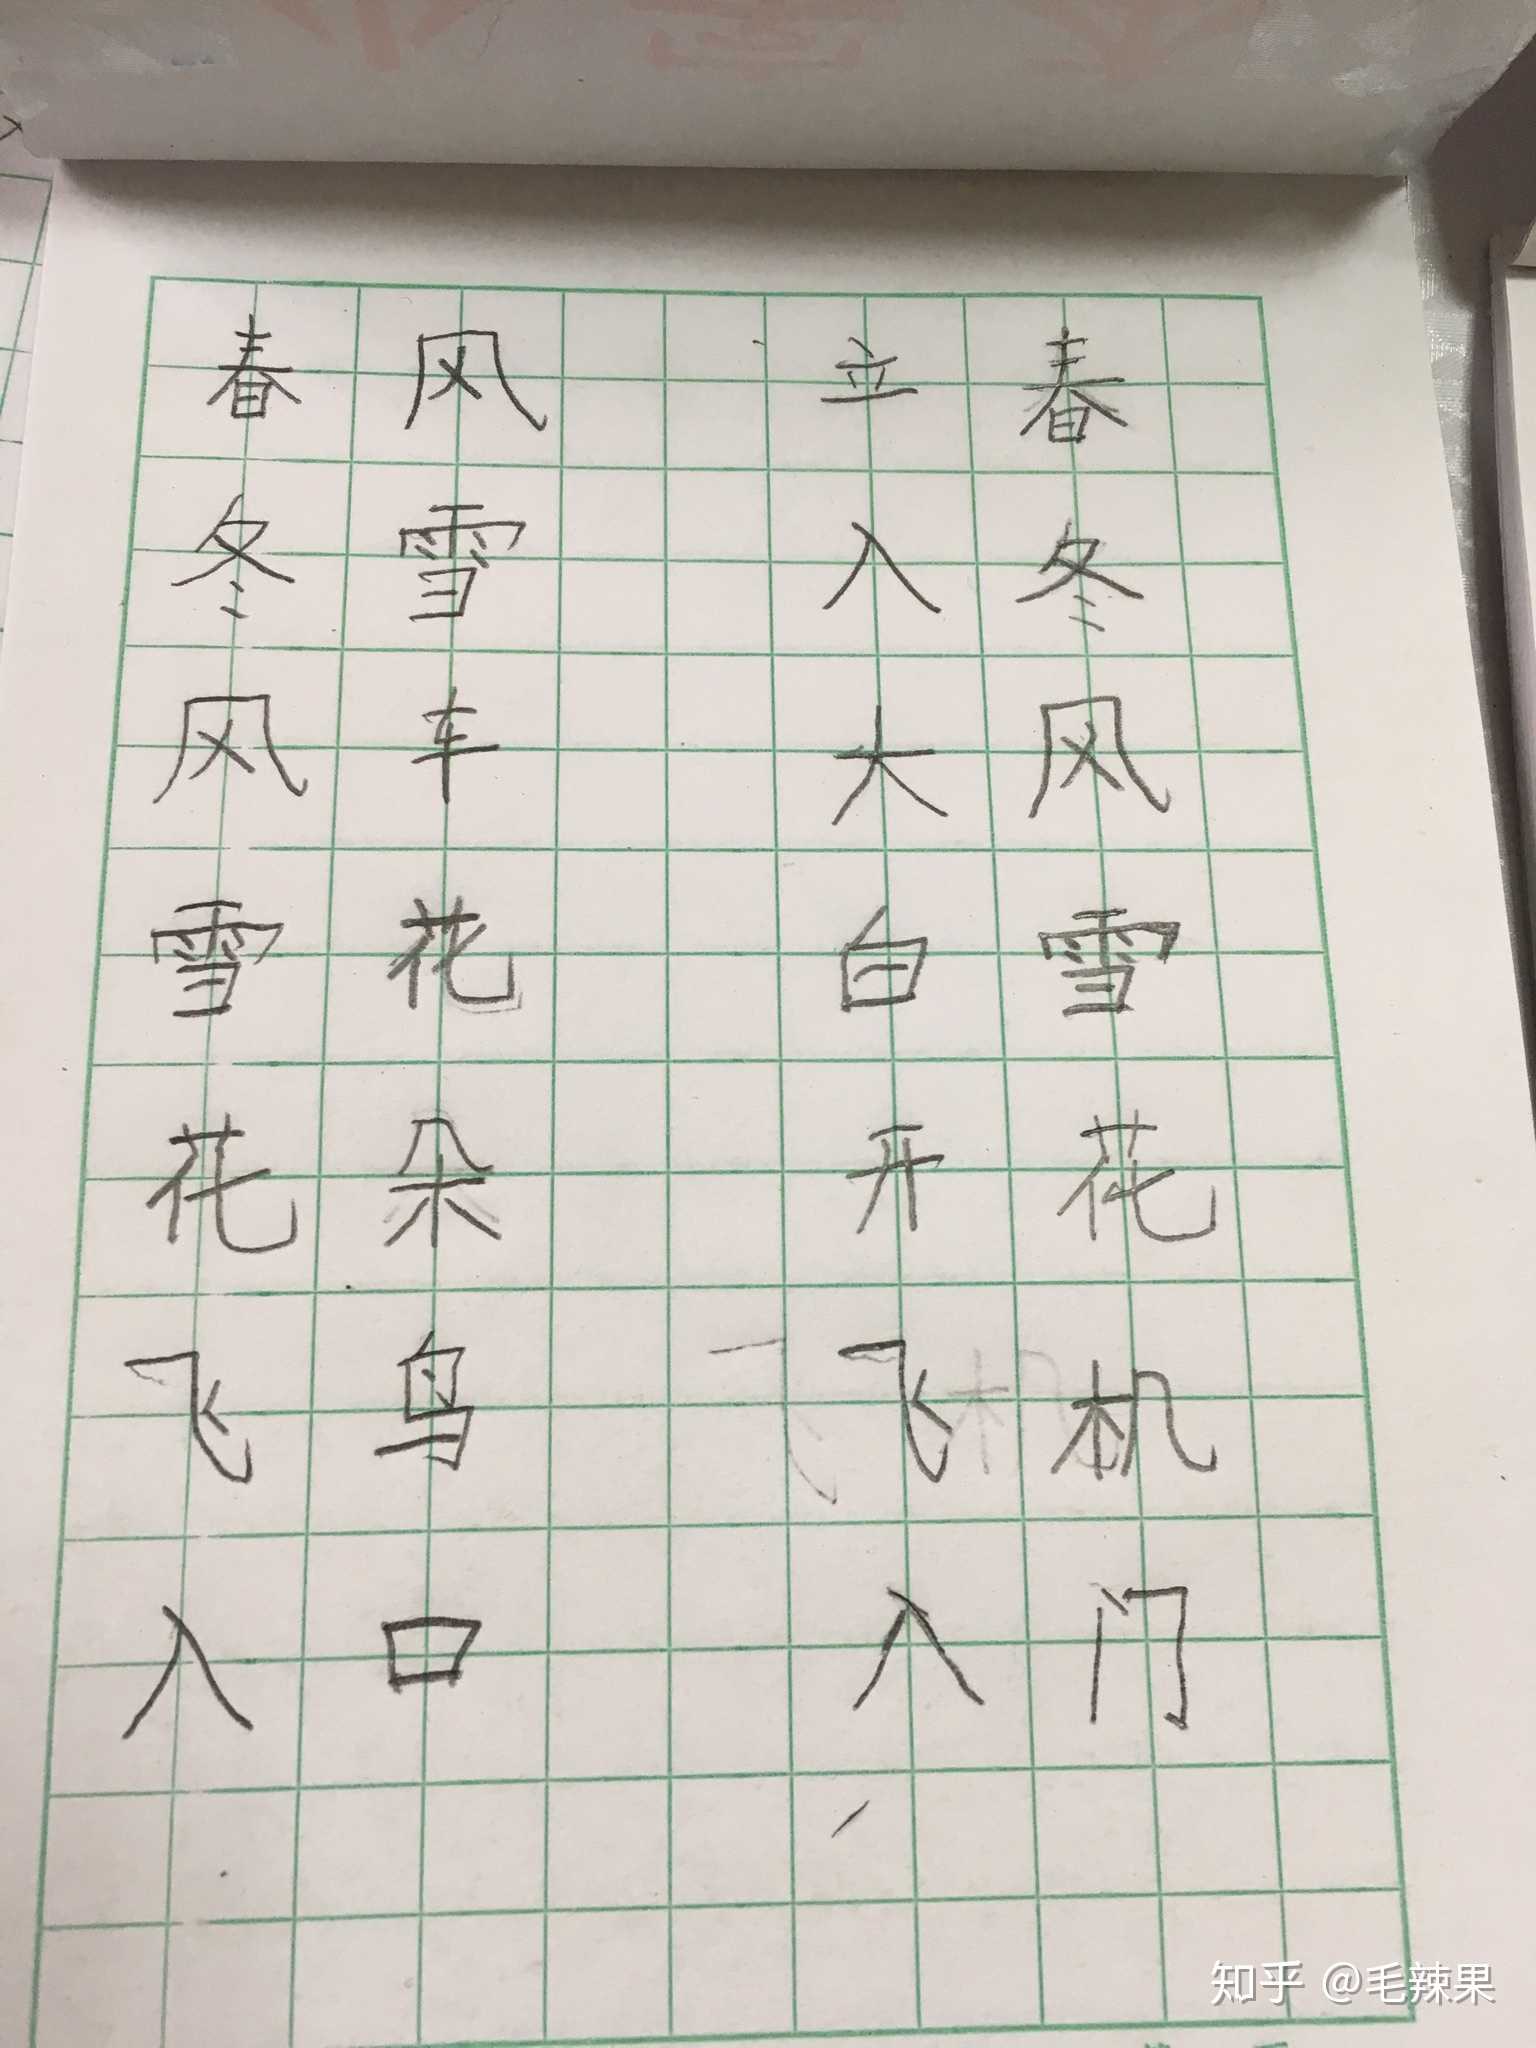 春风 立春
冬雪 入冬
风车 大风
雪花 白雪
花朵 开花
飞鸟 飞机
入口 入门
知乎 @毛辣果